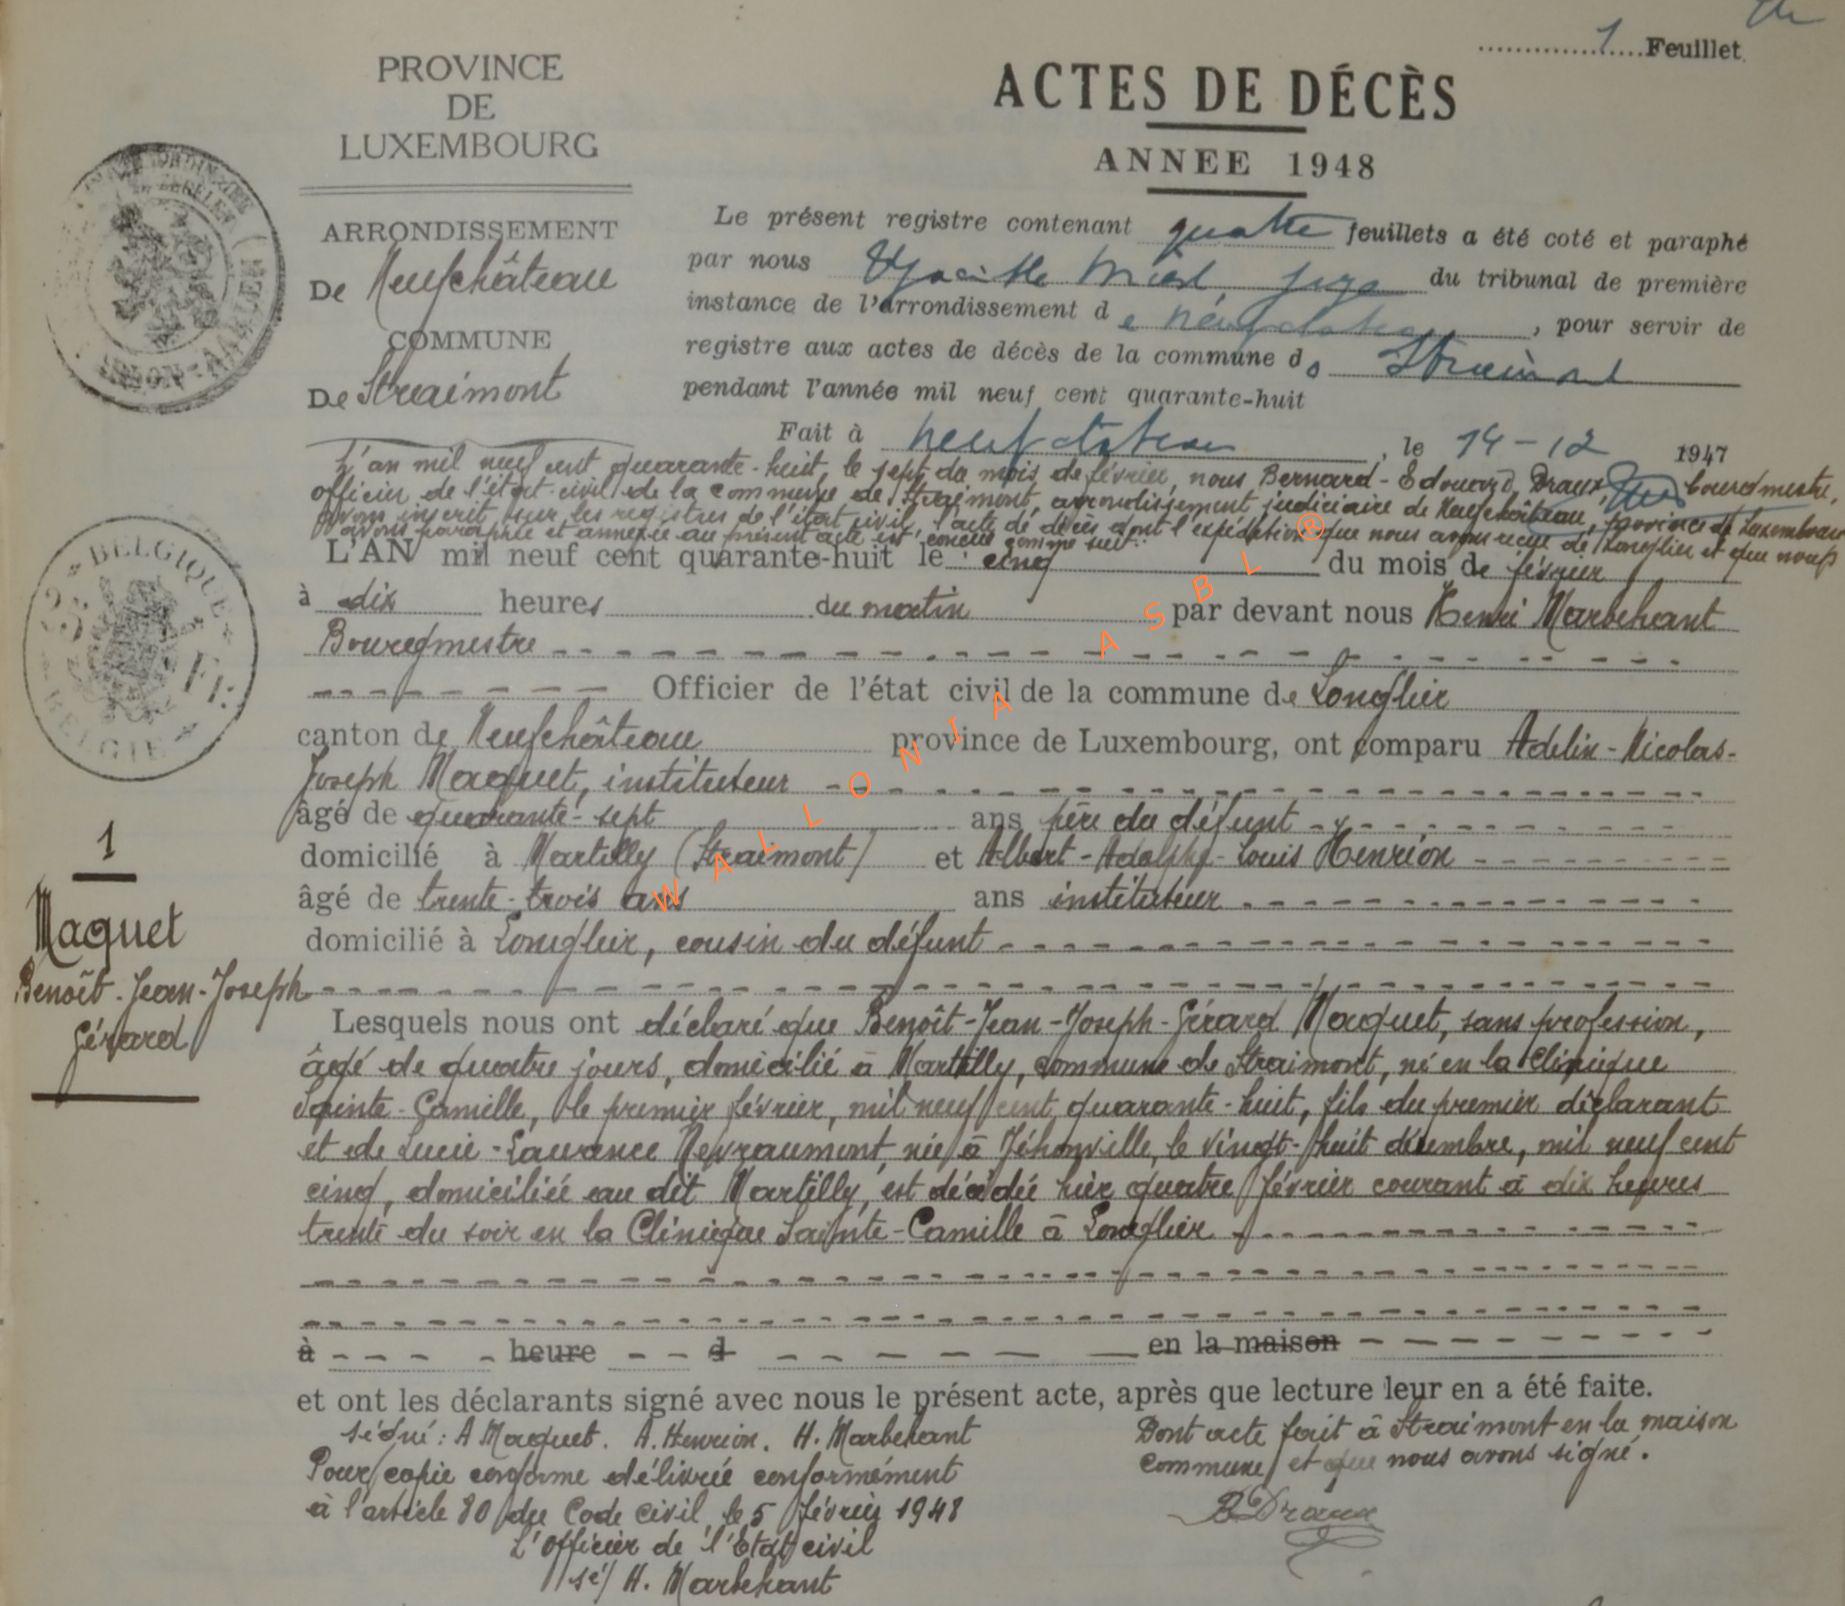 1 Feuillet
PROVINCE
DE
LUXEMBOURG
ACTES DE DÉCÈS
ANNEE 1948
ARRONDISSEMENT
De Neufchâteau
COMMUNE
De Straimont
Le présent registre contenant quatre feuillets a été coté et paraphé
par nous juge du tribunal de première
instance de l'arrondissement de Neufchateau, pour servir de
registre aux actes de décès de la commune de Straimont
pendant l'année mil neuf cent quarante-huit
Fait à Neufchateau, le 14-12 1947
L'an mil neuf cent quarante-huit, le sept du mois de février, nous Bernard-Edouard Draux, bourgmestre,
officier de l'état-civil de la commune de Straimont, arrondissement judiciaire de Neufchâteau, province de Luxembourg
avons inscrit sur les registres de l'état civil, l'acte de décès dont l'expédition que nous avons reçue de Longlier et que nous
avons paraphée et annexée au présent acte est conçue comme suit:
L'AN mil neuf cent quarante-huit le cinq du mois de février
à dix heures du matin par devant nous Henri Marbehant
Bourgmestre
Officier de l'état civil de la commune de Longlier
canton de Neufchâteau province de Luxembourg, ont comparu Adelin-Nicolas-
Joseph Maquet, instituteur
âgé de quarante-sept ans père du défunt
domicilié à Martilly (Straimont) et Albert-Adolphe-Louis Henrion
âgé de trente-trois ans ans instituteur
domicilié à Longlier, cousin du défunt
1
Maquet
Benoît-Jean-Joseph
Gérard
Lesquels nous ont déclaré que Benoît-Jean-Joseph-Gérard Maquet, sans profession,
âgé de quatre jours, domicilié à Martilly, commune de Straimont, né en la Clinique
Sainte-Camille, le premier février, mil neuf cent quarante-huit, fils du premier déclarant
et de Lucie-Laurence Nevraumont, née à Jéhonville, le vingt-huit décembre, mil neuf cent
cinq, domiciliée au dit Martilly, est décédé hier quatre février courant à dix heures
trente du soir en la Clinique Sainte-Camille à Longlier
à heure d en la maison
et ont les déclarants signé avec nous le présent acte, après que lecture leur en a été faite.
signé: A Maquet. A. Henrion. H. Marbehant
Pour copie conforme délivrée conformément
à l'article 80 du Code civil, le 5 février 1948
L'Officier de l'Etat civil
sé/ H. Marbehant
Dont acte fait à Straimont en la maison
commune et que nous avons signé.
B Draux
BELGIQUE
BELGIE
FR
WALLONIA ASBL ®